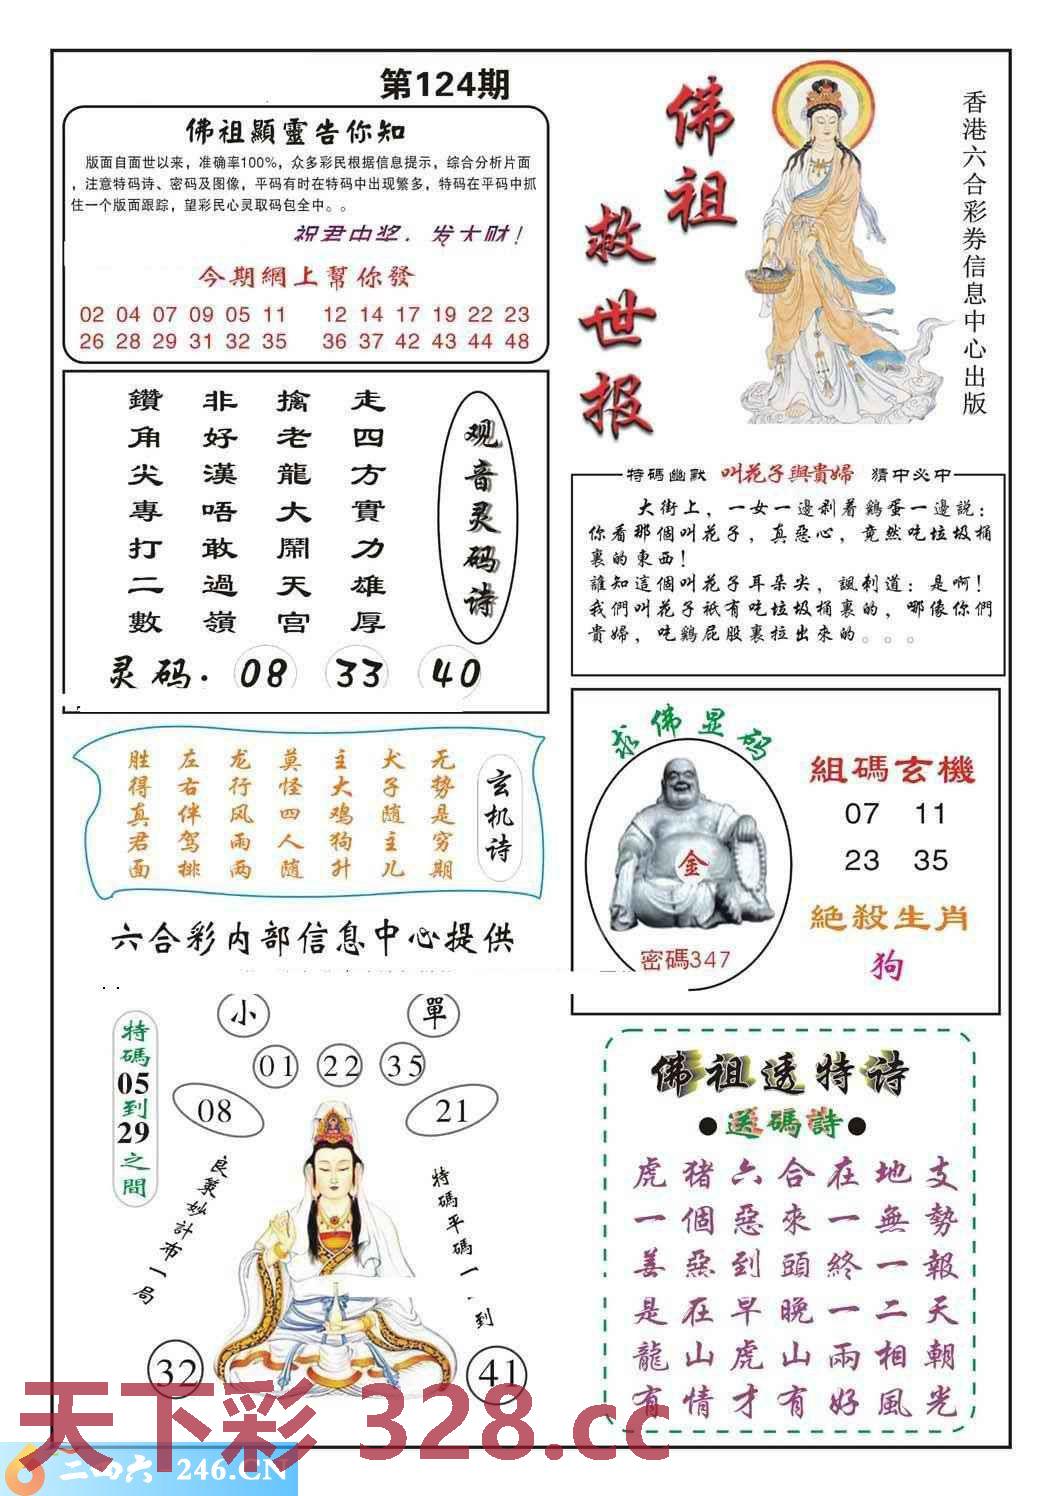 第124期
佛祖顯靈告你知
版面自面世以来，准确率100%，众多彩民根据信息提示，综合分析片面
，注意特码诗、密码及图像，平码有时在特码中出现繁多，特码在平码中抓
住一个版面跟踪，望彩民心灵取码包全中。。
祝君中奖，发大财！
今期網上幫你發
02 04 07 09 05 11 12 14 17 19 22 23
26 28 29 31 32 35 36 37 42 43 44 48
佛祖
救世报
香港六合彩券信息中心出版
观音灵码诗
走四方實力雄厚
擒老龍大鬧天宫
非好漢唔敢過嶺
鑽角尖專打二數
灵码．08 33 40
特碼幽默 叫花子與貴婦 猜中必中
大街上，一女一邊剥着鷄蛋一邊說：
你看那個叫花子，真惡心，竟然吃垃圾桶
裏的東西！
誰知這個叫花子耳朵尖，諷刺道：是啊！
我們叫花子祇有吃垃圾桶裏的，哪像你們
貴婦，吃鷄屁股裏拉出來的。。。
玄机诗
无势是穷期
犬子随主儿
主大鸡狗升
莫怪四人随
龙行风雨两
左右伴驾排
胜得真君面
六合彩内部信息中心提供
求佛显码
金
密碼347
組碼玄機
07 11
23 35
絕殺生肖
狗
特碼05到29之間
小 單
01 22 35
08 21
良策妙計布一局
特碼平碼一到
32 41
佛祖透特诗
●送碼詩●
虎猪六合在地支
一個惡來一無勢
善惡到頭終一報
是在早晚一二天
龍山虎山兩相朝
有情才有好風光
天下彩 328.cc
二四六 246.CN